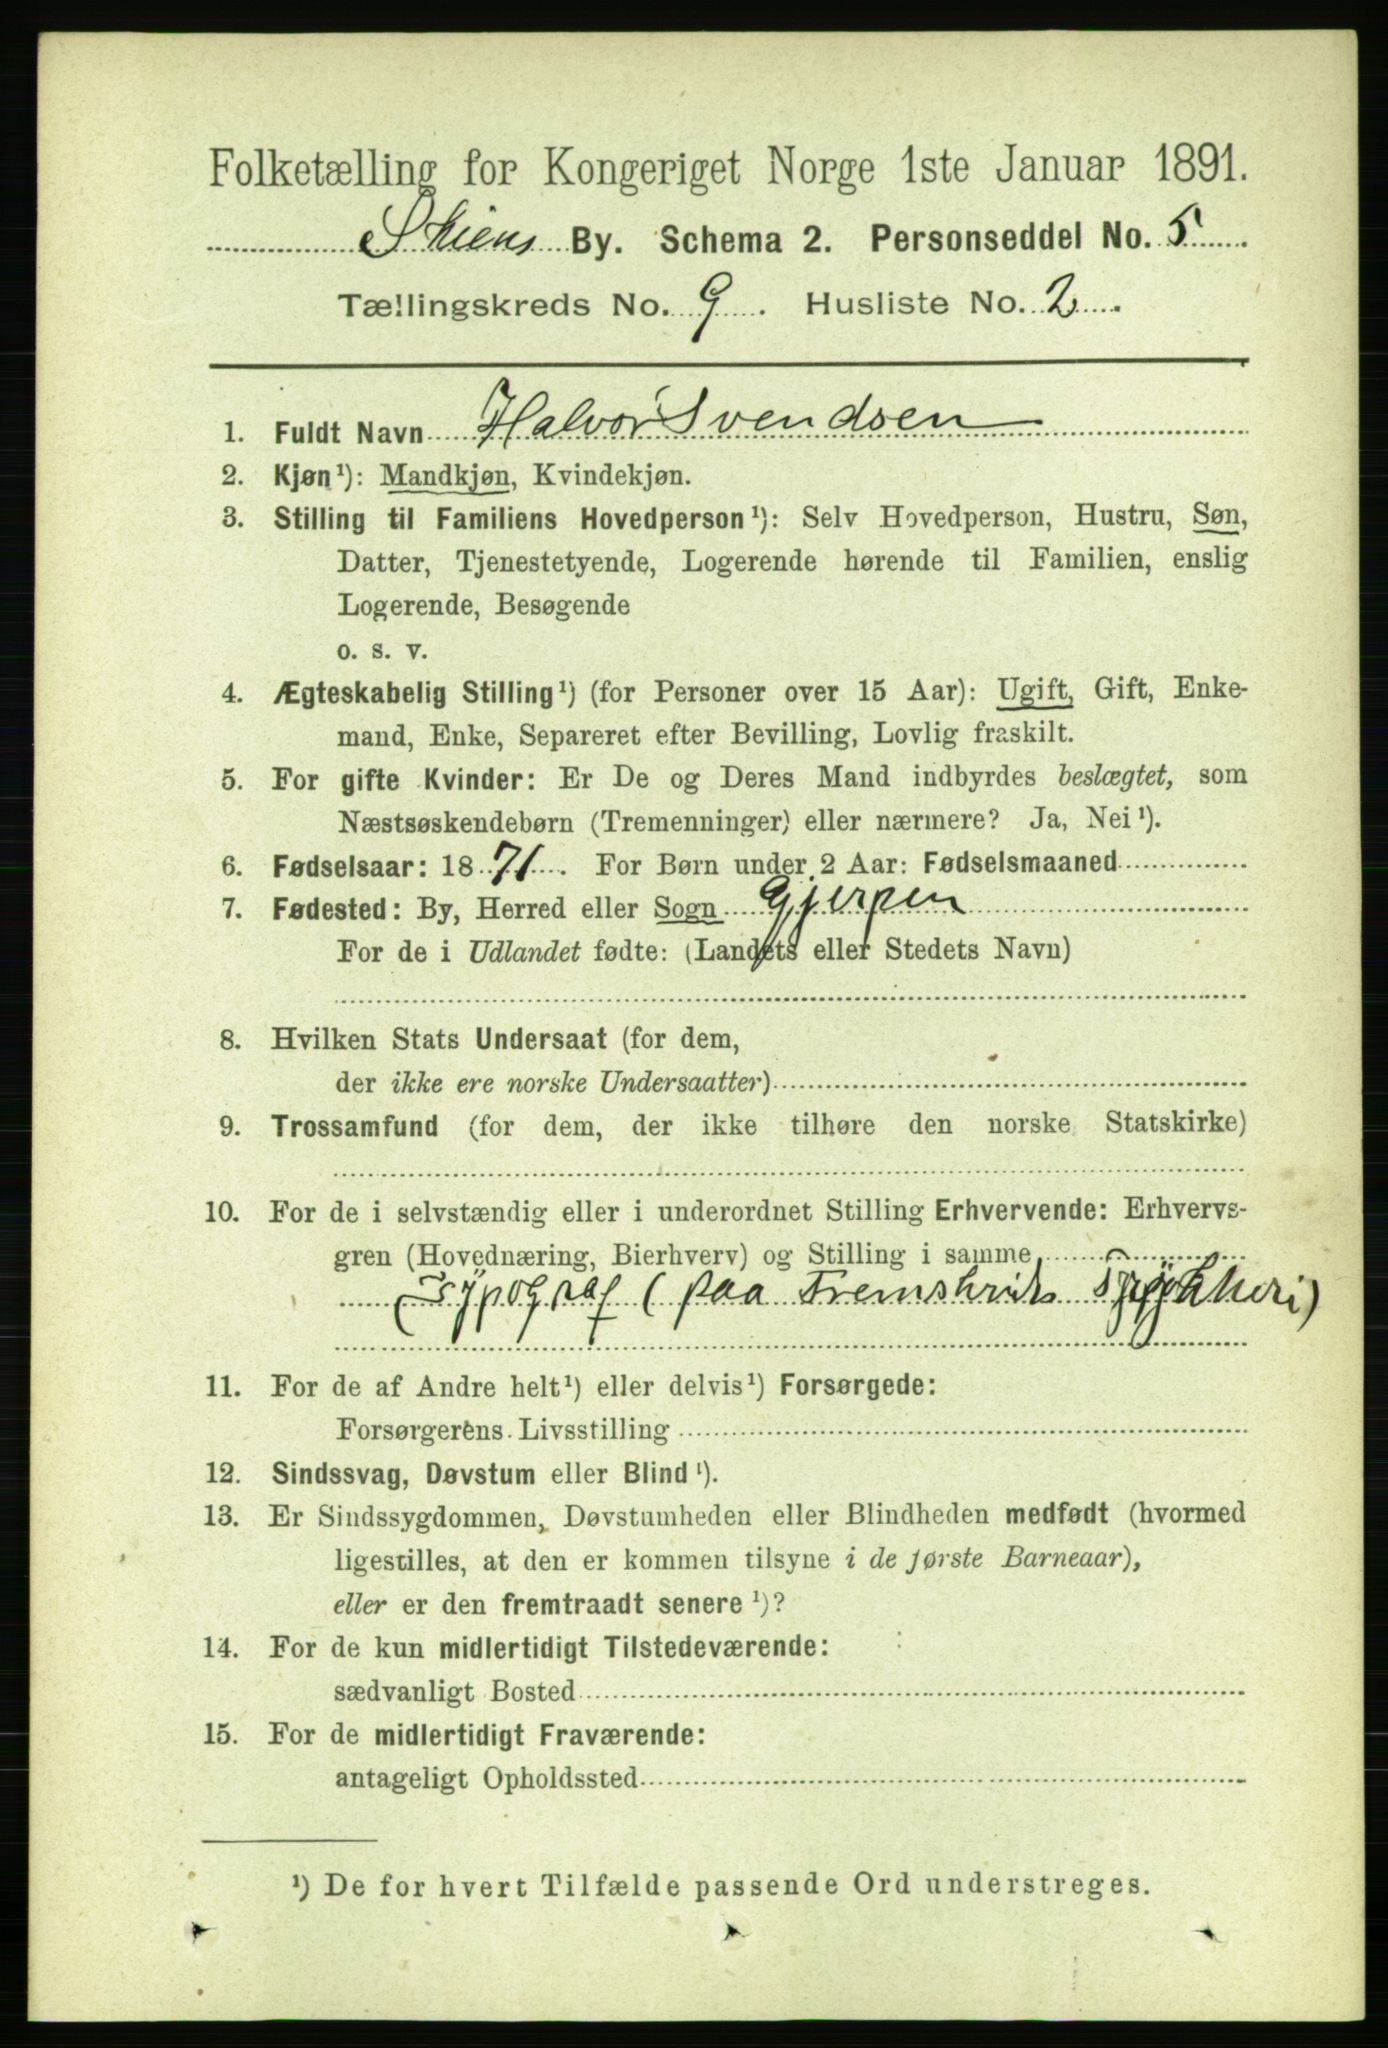 Folketælling for Kongeriget Norge 1ste Januar 1891.
Skiens By. Schema 2. Personseddel No. 5.
Tællingskreds No. 9. Husliste No. 2.
1. Fuldt Navn Halvor Svendsen
2. Kjøn¹): Mandkjøn, Kvindekjøn.
3. Stilling til Familiens Hovedperson¹): Selv Hovedperson, Hustru, Søn,
Datter, Tjenestetyende, Logerende hørende til Familien, enslig
Logerende, Besøgende
o. s. v.
4. Ægteskabelig Stilling¹) (for Personer over 15 Aar): Ugift, Gift, Enke-
mand, Enke, Separeret efter Bevilling, Lovlig fraskilt.
5. For gifte Kvinder: Er De og Deres Mand indbyrdes beslægtet, som
Næstsøskendebørn (Tremenninger) eller nærmere? Ja, Nei¹).
6. Fødselsaar: 1871. For Børn under 2 Aar: Fødselsmaaned
7. Fødested: By, Herred eller Sogn Gjerpen
For de i Udlandet fødte: (Landets eller Stedets Navn)
8. Hvilken Stats Undersaat (for dem,
der ikke ere norske Undersaatter)
9. Trossamfund (for dem, der ikke tilhøre den norske Statskirke)
10. For de i selvstændig eller i underordnet Stilling Erhvervende: Erhvervs-
gren (Hovednæring, Bierhverv) og Stilling i samme
Typograf (paa Fremskridts )
11. For de af Andre helt¹) eller delvis¹) Forsørgede:
Forsørgerens Livsstilling
12. Sindssvag, Døvstum eller Blind¹).
13. Er Sindssygdommen, Døvstumheden eller Blindheden medfødt (hvormed
ligestilles, at den er kommen tilsyne i de første Barneaar),
eller er den fremtraadt senere¹)?
14. For de kun midlertidigt Tilstedeværende:
sædvanligt Bosted
15. For de midlertidigt Fraværende:
antageligt Opholdssted
¹) De for hvert Tilfælde passende Ord understreges.